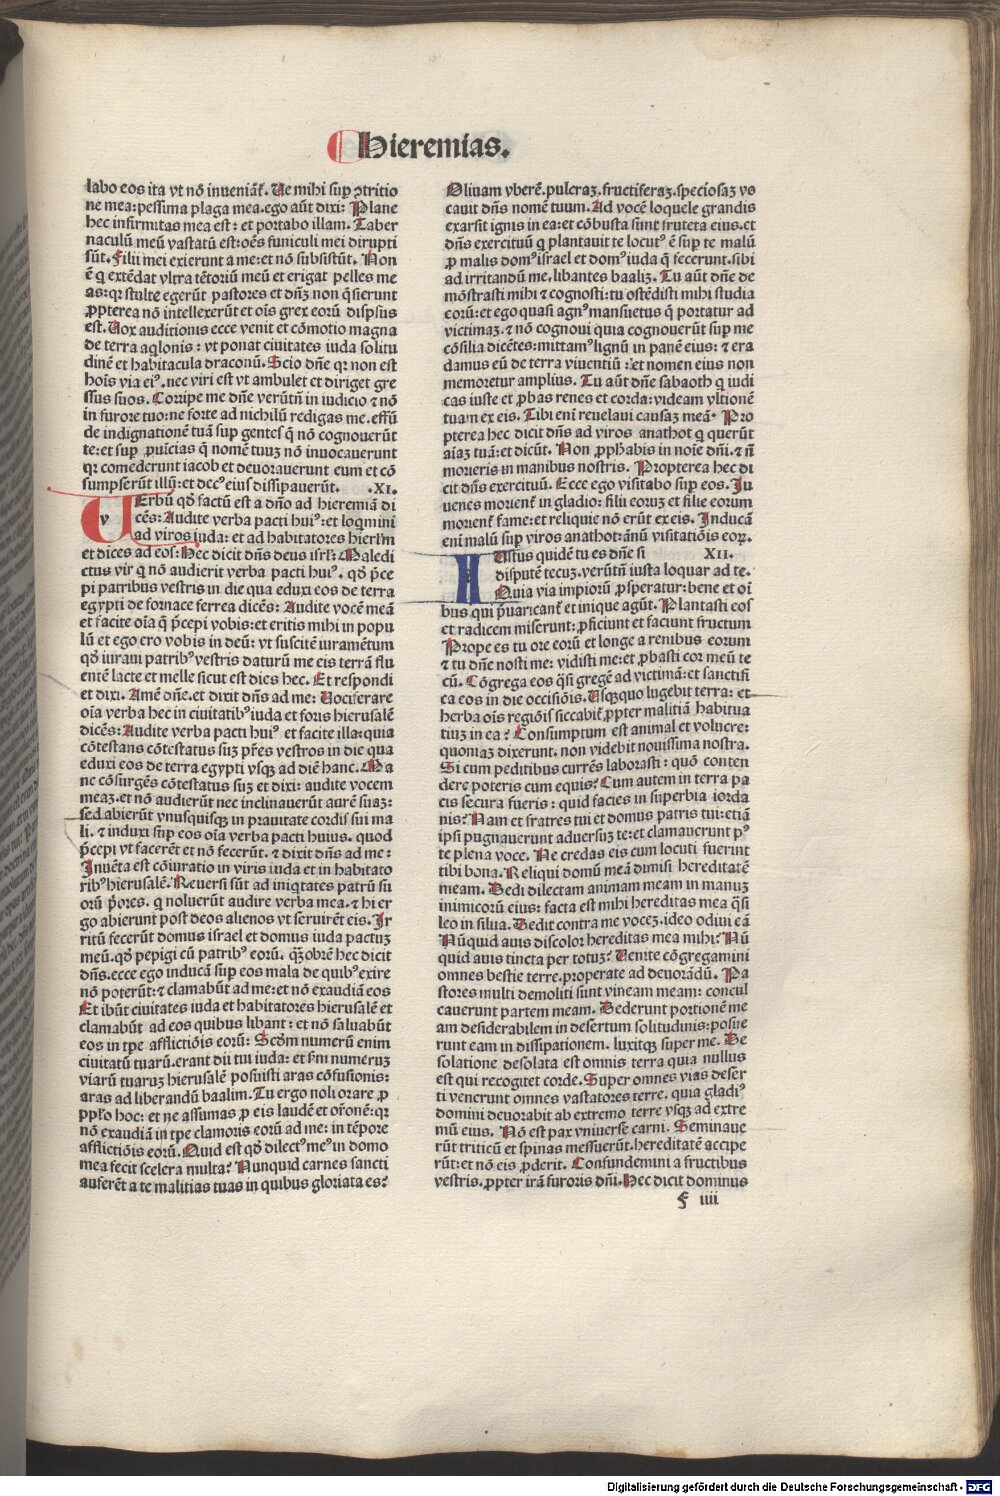 Hieremias.
labo eos ita vt nō inueniāt᷑. Ue mihi sup̱ ꝯtritio
ne mea: pessima plaga mea. ego aūt dixi: Plane
hec infirmitas mea est: et portabo illam. Taber
naculū meū vastatū est: oēs funiculi mei dirupti
sūt. Filii mei exierunt a me: et nō subsistūt. Non
ē q̇ extēdat vltra tētoriū meū et erigat pelles me
as: qꝛ stulte egerūt pastores et dn̄ꝫ non q̄sierunt
ꝓpterea nō intellexerūt et oīs grex eorū disp̱sus
est. Uox auditionis ecce venit et cōmotio magna
de terra aq̇lonis: vt ponat ciuitates iuda solitu
dinē et habitacula draconū. Scio dn̄e qꝛ non est
hoīs via eiꝰ. nec viri est vt ambulet et diriget gre
ssus suos. Corripe me dn̄e verūtn̄ in iudicio ⁊ nō
in furore tuo: ne forte ad nichilū redigas me. effū
de indignationē tuā sup̱ gentes q̄ nō cognouerūt
te: et sup̱ ꝓuīcias q̄ nomē tuuꝫ nō inuocauerunt
qꝛ comederunt iacob et deuorauerunt eum et cō
sumpserūt illū: et decꝰ eius dissipauerūt. .XI.
v Erbū qḋ factū est a dn̄o ad hieremiā di
cēs: Audite verba pacti huiꝰ: et loq̇mini
ad viros iuda: et ad habitatores hierl̄m
et dices ad eos: Hec dicit dn̄s deus isrl̄: Maledi
ctus vir q̇ nō audierit verba pacti huiꝰ. qḋ p̄ce
pi patribus vestris in die qua eduxi eos de terra
egypti de fornace ferrea dicēs: Audite vocē meā
et facite oīa q̄ p̄cepi vobis: et eritis mihi in popu
lū et ego ero vobis in deū: vt suscitē iuramētum
qḋ iuraui patribꝰ vestris daturū me eis terrā flu
entē lacte et melle sicut est dies hec. Et respondi
et dixi. Amē dn̄e. et dixit dn̄s ad me: Uociferare
oīa verba hec in ciuitatibꝰ iuda et foris hierusalē
dicēs: Audite verba pacti huiꝰ et facite illa: quia
cōtestans cōtestatus suꝫ pr̄es vestros in die qua
eduxi eos de terra egypti vsqꝫ ad diē hanc. Ma
ne cōsurgēs cōtestatus suꝫ et dixi: audite vocem
meaꝫ. et nō audierūt nec inclinauerūt aurē suaꝫ:
sed abierūt vnusquisqꝫ in prauitate cordis sui ma
li. ⁊ induxi sup̱ eos oīa verba pacti huius. quod
p̄cepi vt facerēt et nō fecerūt. ⁊ dixit dn̄s ad me:
Inuēta est cōiuratio in viris iuda et in habitato
ribꝰ hierusalē. Reuersi sūt ad iniq̇tates patrū su
orū p̄ores. q̇ noluerūt audire verba mea. ⁊ hi er
go abierunt post deos alienos vt seruirēt eis. Ir
ritū fecerūt domus israel et domus iuda pactuꝫ
meū. qḋ pepigi cū patribꝰ eorū. q̄obrē hec dicit
dn̄s. ecce ego inducā sup̱ eos mala de quibꝰ exire
nō poterūt: ⁊ clamabūt ad me: et nō exaudiā eos
Et ibūt ciuitates iuda et habitatores hierusalē et
clamabūt ad eos quibus libant: et nō saluabūt
eos in tp̄e afflictiōis eorū: Scḋm numerū enim
ciuitatū tuarū. erant dii tui iuda: et ẜm numeruꝫ
viarū tuaruꝫ hierusalē posuisti aras cōfusionis:
aras ad liberandū baalim. Tu ergo noli orare ꝓ
pp̄ło hoc: et ne assumas ꝓ eis laudē et or̄onē: qꝛ
nō exaudiā in tp̄e clamoris eorū ad me: in tēpore
afflictiōis eorū. Quid est qḋ dilectꝰ meꝰ in domo
mea fecit scelera multa? Nunquid carnes sancti
auferēt a te malitias tuas in quibus gloriata es?
Oliuam vberē. pulcraꝫ. fructiferaꝫ. speciosaꝫ vo
cauit dn̄s nomē tuum. Ad vocē loquele grandis
exarsit ignis in ea: et cōbusta sunt fruteta eius. et
dn̄s exercituū q̇ plantauit te locutꝰ ē sup̱ te malū
ꝓ malis domꝰ israel et domꝰ iuda q̄ fecerunt. sibi
ad irritandū me. libantes baaliꝫ. Tu aūt dn̄e de
mōstrasti mihi ⁊ cognosti: tu ostēdisti mihi studia
eorū: et ego quasi agnꝰ mansuetus q̇ portatur ad
victimaꝫ. ⁊ nō cognoui quia cognouerūt sup̱ me
cōsilia dicētes: mittamꝰ lignū in panē eius: ⁊ era
damus eū de terra viuentiū: et nomen eius non
memoretur amplius. Tu aūt dn̄e sabaoth q̇ iudi
cas iuste et ꝓbas renes et corda: videam vltionē
tuam ex eis. Tibi eni reuelaui causaꝫ meā. Pro
pterea hec dicit dn̄s ad viros anathot q̇ querūt
aīaꝫ tuā: et dicūt. Non ꝓpħabis in noīe dn̄i. ⁊ n̄
morieris in manibus nostris. Propterea hec di
cit dn̄s exercituū. Ecce ego visitabo sup̱ eos. Ju
uenes morient᷑ in gladio: filii eoruꝫ et filie eorum
morient᷑ fame: et reliquie nō erūt ex eis. Inducā
eni malū sup̱ viros anathot: ānū visitatiōis eoꝝ.
I Ustus quidē tu es dn̄e si XII.
disputē tecuꝫ. verūtn̄ iusta loquar ad te.
Quia via impiorū ꝓsperatur: bene et oī
bus qui p̄uaricant᷑ et inique agūt. Plantasti eos
et radicem miserunt: ꝓficiunt et faciunt fructum
Prope es tu ore eorū et longe a renibus eorum
⁊ tu dn̄e nosti me: vidisti me: et ꝓbasti cor meū te
cū. Cōgrega eos q̄si gregē ad victimā: et sanctifi
ca eos in die occisiōis. Usqꝫquo lugebit terra: et
herba oīs regiōis siccabit᷑ ꝓpter malitiā habitā
tiuꝫ in ea? Consumptum est animal et volucre:
quoniaꝫ dixerunt. non videbit nouissima nostra.
Si cum peditibus currēs laborasti: quō conten
dere poteris cum equis? Cum autem in terra pa
cis secura fueris: quid facies in superbia iorda
nis? Nam et fratres tui et domus patris tui: etiā
ipsi pugnauerunt aduersuꝫ te: et clamauerunt pꝰ
te plena voce. Ne credas eis cum locuti fuerint
tibi bona. Reliqui domū meā dimisi hereditatē
meam. Dedi dilectam animam meam in manuꝫ
inimicorū eius: facta est mihi hereditas mea q̄si
leo in silua. Dedit contra me voceꝫ. ideo odiui eā
Nūquid auis discolor hereditas mea mihi? Nū
quid auis tincta per totuꝫ? Uenite cōgregamini
omnes bestie terre. properate ad deuorādū. Pa
stores multi demoliti sunt vineam meam: concul
cauerunt partem meam. Dederunt portionē me
am desiderabilem in desertum solitudinis: posue
runt eam in dissipationem. luxitqꝫ super me. De
solatione desolata est omnis terra quia nullus
est qui recogitet corde. Super omnes vias deser
ti venerunt omnes vastatores terre. quia gladiꝰ
domini deuorabit ab extremo terre vsqꝫ ad extre
mū eius. Nō est pax vniuerse carni. Seminaue
rūt triticū et spinas messuerūt. hereditatē accipe
rūt: et nō eis ꝓderit. Confundemini a fructibus
vestris. ꝓpter irā furoris dn̄i. Hec dicit dominus
f iiii
Digitalisierung gefördert durch die Deutsche Forschungsgemeinschaft - DFG